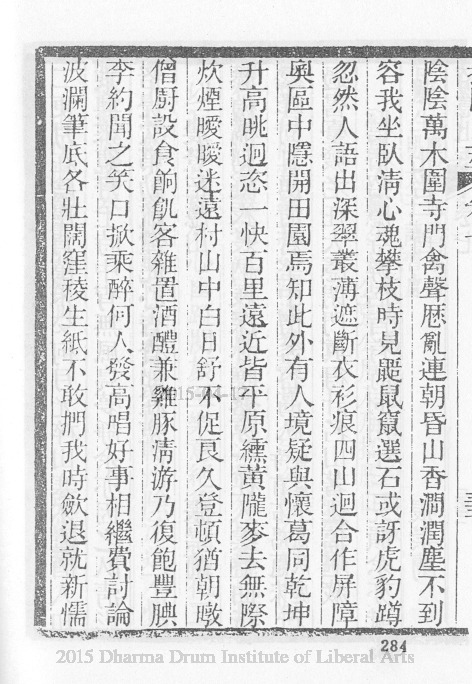 陰陰萬木圍寺門禽聲歷亂連朝昏山香澗潤塵不到
容我坐臥淸心魂攀枝時見鼯鼠竄選石或訝虎豹蹲
忽然人語出深翠叢薄遮斷衣衫痕四山迴合作屏障
奥區中隱開田園焉知此外有人境疑與懷葛同乾坤
升高眺迥恣一快百里遠近皆平原纁黃隴麥去無際
炊煙曖曖迷遠村山中白日舒不促良久登頓猶朝暾
僧廚設食餉飢客雜置酒醴兼雞豚淸游乃復飽豐腴
李約聞之笑口掀乘醉何人發高唱好事相繼費討論
波瀾筆底各壯闊窪稜生紙不敢捫我時歛退就新懦
284
2015 Dharma Drum Institute of Liberal Arts